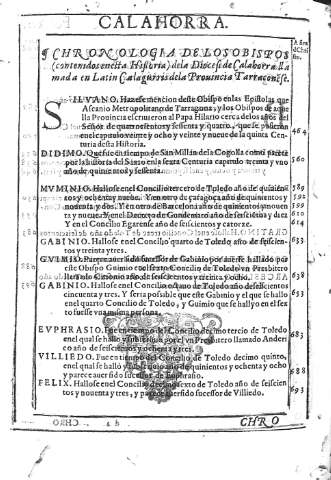 CALAHORRA.
¶ CHRONOLOGIA DE LOS OBISPOS
(contenidos en esta Historia) de la Diocesi de Calahorra lla
mada en Latin Calagurris de la Provincia Tarraconense.
SILVANO. Hazese mencion deste Obispo en las Epistolas que
Ascanio Metropolitano de Tarragona, y los Obispos de aque
lla Provincia escrivieron al Papa Hilario cerca de los años del
Señor de quatrocientos y sesenta y quatro, que se
en el capitulo veynte y ocho y veynte y nueve de la quinta Cen-
turia desta Historia.
464
DIDIMO. Que fue en tiempo de San Millan de la Cogolla como parece
por la historia del Santo en la sexta Centuria capitulo treynta y uno
año de quinientos y sesenta.
560
MVMINIO. Hallose en el Concilio tercero de Toledo año de quinien-
tos y ochenta y nueve. Y en otro de çaragoça año de quinientos y
noventa y dos. Y en otro de Barcelona año de quinientos y noven
ta y nueve. Y en el Decreto de Gundemaro año de seiscientos y diez
Y en el Concilio Egarense año de seiscientos y catorze.
589
592
599
610
614
GABINIO. Hallose en el Concilio quarto de Toledo año de seiscien-
tos y treinta y tres.
633
GVIMIO. sucessor de Gabinio por averse hallado por
este Obispo Guimio en el sexto Concilio de Toledo un Presbitero
año de seiscientos y treinta y ocho.
638
GABINIO. Hallose en el Concilio octavo de Toledo año de seiscientos
cincuenta y tres. Y seria possible que este Gabinio y el que se hallo
en el quarto Concilio de Toledo, y Guimio que se hallo en el sex
to fuesse una misma persona.
653
EVPHRASIO. Fue en tiempo del Concilio decimo tercio de Toledo
en el qual se hallo y subscrivio por el un Presbitero llamado Andere
co año de seiscientos y ochenta y tres.
683
VILLIEDO. Fue en tiempo del Concilio de Toledo decimo quinto,
en el qual se hallo y subscrivio año de quinientos y ochenta y ocho
y parece aver sido sucessor de Euphrasio.
688
FELIX. Hallose en el Concilio decimo sexto de Toledo año de seiscien
tos y noventa y tres, y parece aver sido sucessor de Villiedo.
693
CHRO